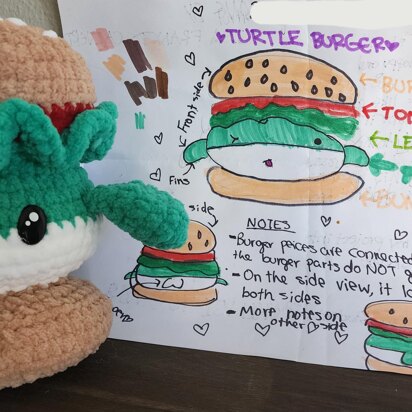 ♥TURTLE BURGER♥
Front side
← BU
← TO
← LE
← T
Fins
side
NOTES
- Burger pieces are connected
the burger parts do NOT
- On the side view, it lo
both sides
- More notes on
other side